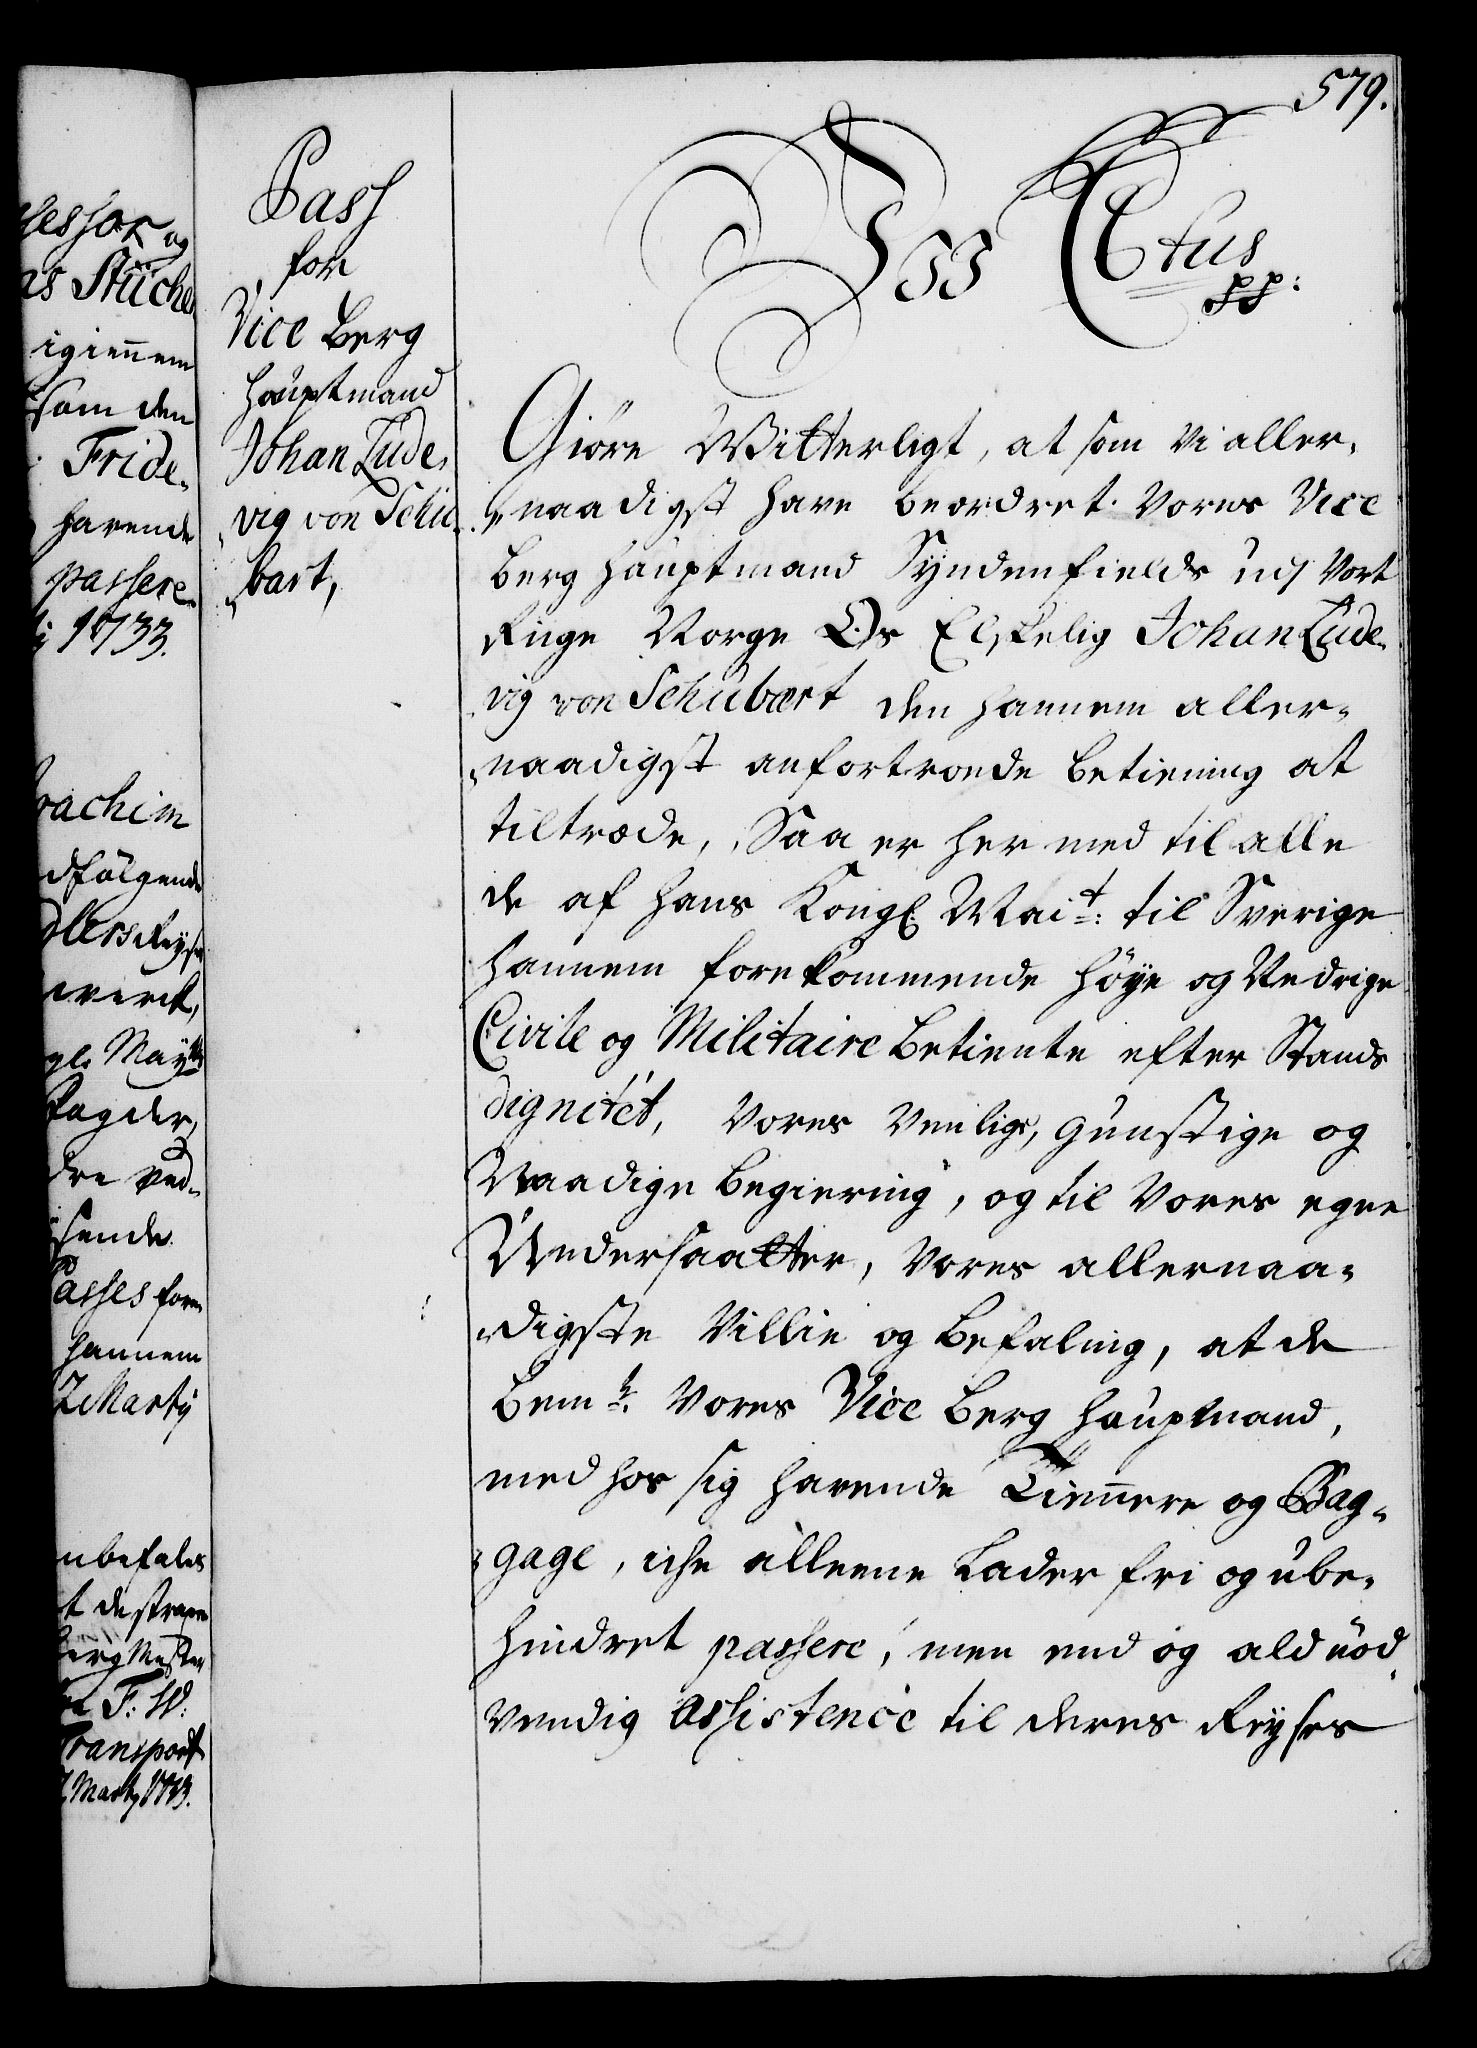 579.
Pass
for
Vice Berg
Hauptmand
Johan Lude-
vig von Schu-
bart,
C 6tus
pp:
Giöre Witterligt, at som Vi aller-
naadigst have beordret Vores Vice
Berg Hauptmand Syndenfields udj Vort
Riige Norge Os Elskelig Johan Lude-
vig von Schubart den hannem aller-
naadigst anfortroede Betiening at
tiltræde, Saa er her med til alle
de af Hans Kongl. Mait: til Sverige
hannem forekommende Höye og Nedrige
Civile og Militaire Betiente efter Stands
dignitét, Vores Venlige, gunstige og
Naadige Begiering, og til Vores egne
Undersaatter, Vores allernaa-
digste Villie og Befaling, at de
bemte. Vores Vice Berg Hauptmand,
med hos sig havende Tiennere og Bag-
gage, iche alleene Lader fri og ube-
hindret passere, men end og ald nöd
vendig assistence til deres Reyses
sessor og
as Stüche
igiennem
som den
Fride-
havende
passere
1733.
Joachim
dfölgende
Reyse
werck,
gl. Maytts
Fogder,
dre ved-
Passes fore
hannem
Marty
nbefales
Berg Mester
F: W:
Transport
Marty 1733.